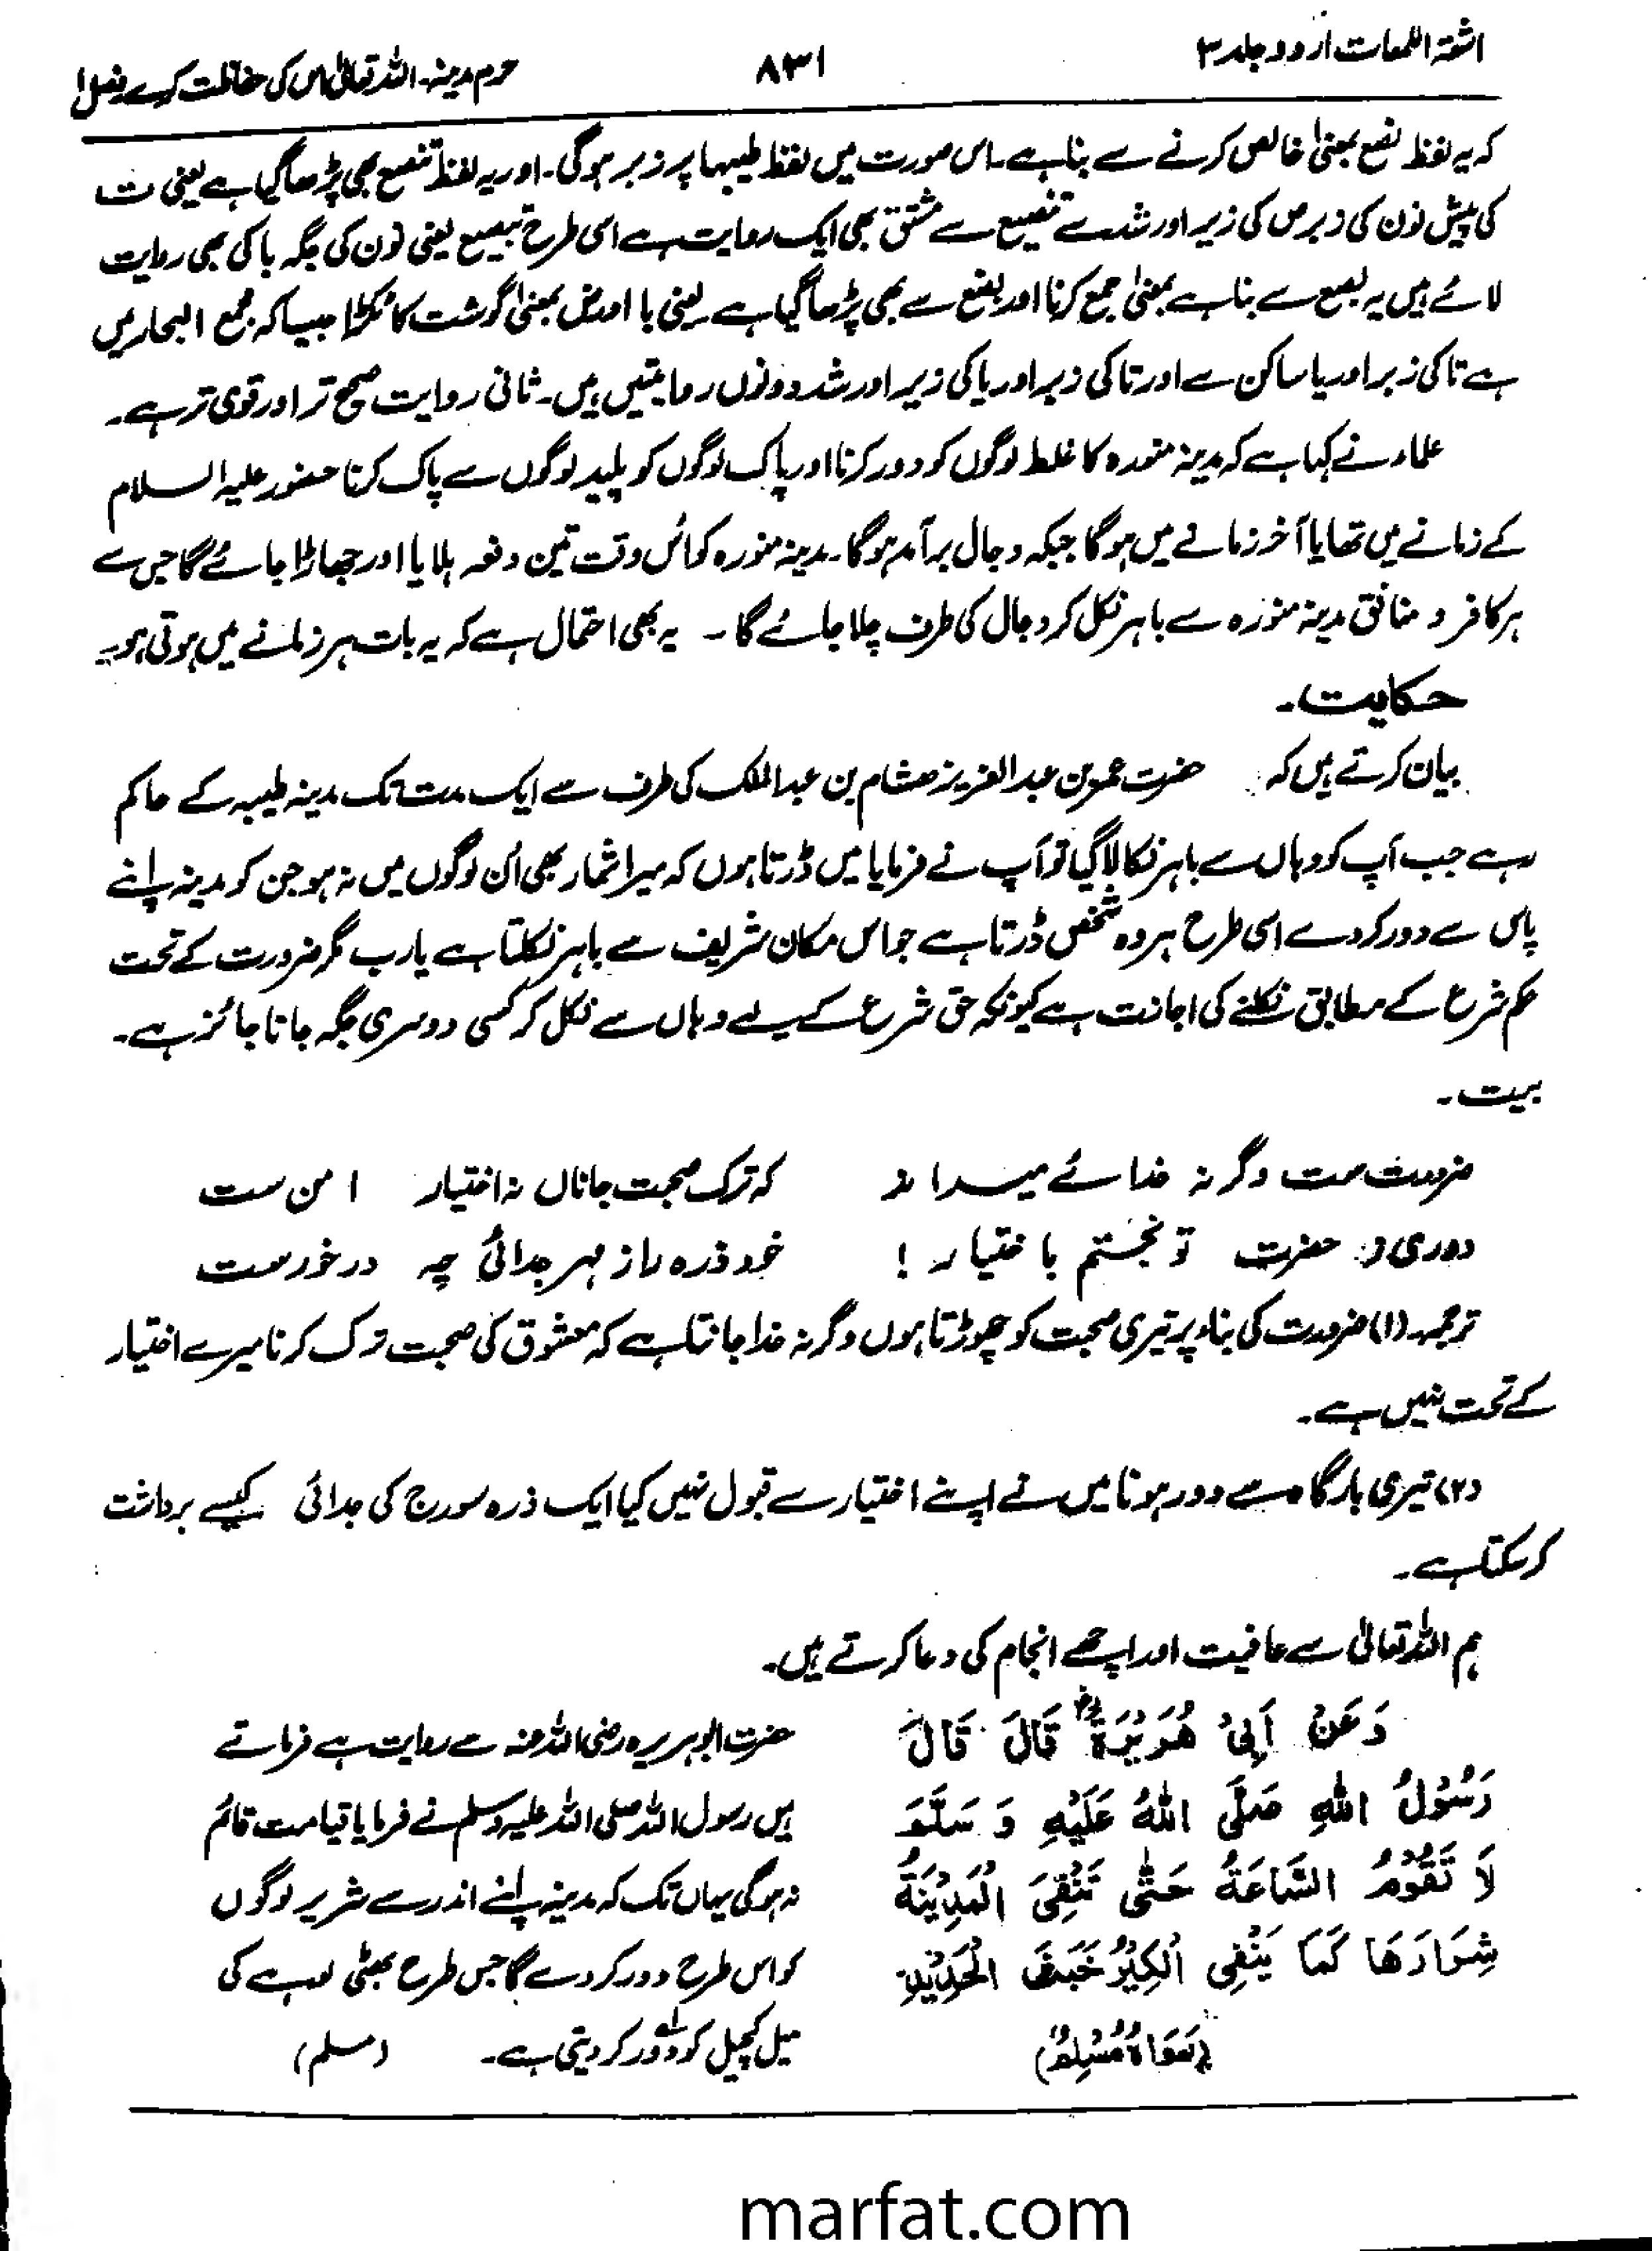 اشعۃ اللمعات اردو جلد ۳
۸۳۱
حرم مدینہ۔ اللہ تعالیٰ اس کی حفاظت کرے فصل ۱
کہ یہ لفظ نصع بمعنی خالص کرنے سے بنا ہے۔ اس صورت میں لفظ طیبہا پر زبر ہوگی۔ اور یہ لفظ تنصع بھی پڑھا گیا ہے یعنی ت
کی پیش نون کی زبر ص کی زیر اور شد سے تنصیع سے مشتق بھی ایک روایت ہے اسی طرح تبصیع یعنی نون کی جگہ با کی بھی روایت
لائے ہیں یہ بصع سے بنا ہے بمعنی جمع کرنا اور بضع سے بھی پڑھا گیا ہے یعنی با اور ض بمعنی گوشت کا ٹکڑا جیسا کہ مجمع البحار میں
ہے تا کی زبر اور یا ساکن سے اور تا کی زبر اور یا کی زیر اور شد دونوں روایتیں ہیں۔ ثانی روایت صحیح تر اور قوی تر ہے۔
علماء نے کہا ہے کہ مدینہ منورہ کا غلط لوگوں کو دور کرنا اور پاک لوگوں کو پلید لوگوں سے پاک کرنا حضور علیہ السلام
کے زمانے میں تھا یا آخر زمانے میں ہوگا جبکہ دجال برآمد ہوگا۔ مدینہ منورہ کو اس وقت تین دفعہ ہلایا اور جھاڑا جائے گا جس سے
ہر کافر و منافق مدینہ منورہ سے باہر نکل کر دجال کی طرف چلا جائے گا۔ یہ بھی احتمال ہے کہ یہ بات ہر زمانے میں ہوتی ہو۔
حکایت۔
بیان کرتے ہیں کہ حضرت عمر بن عبد العزیز ہشام بن عبد الملک کی طرف سے ایک مدت تک مدینہ طیبہ کے حاکم
رہے جب آپ کو وہاں سے باہر نکالا گیا تو آپ نے فرمایا میں ڈرتا ہوں کہ میرا شمار بھی ان لوگوں میں نہ ہو جن کو مدینہ اپنے
پاس سے دور کر دے اسی طرح ہر وہ شخص ڈرتا ہے جو اس مکان شریف سے باہر نکلتا ہے یا رب مگر ضرورت کے تحت
حکم شرع کے مطابق نکلنے کی اجازت ہے کیونکہ حق شرع کے لیے وہاں سے نکل کر کسی دوسری جگہ جانا جائز ہے۔
بیت۔
ضرورت ست وگرنہ خدائے میداند کہ ترک صحبت جاناں نہ اختیار امن ست
دوری ز حضرت تو نجستم باختیار ! خود ذرہ را ز مہر جدائی چہ درخورست
ترجمہ (۱) ضرورت کی بناء پر تیری صحبت کو چھوڑتا ہوں وگرنہ خدا جانتا ہے کہ معشوق کی صحبت ترک کرنا میرے اختیار
کے تحت نہیں ہے۔
(۲) تیری بارگاہ سے دور ہونا میں نے اپنے اختیار سے قبول نہیں کیا ایک ذرہ سورج کی جدائی کیسے برداشت
کر سکتا ہے۔
ہم اللہ تعالیٰ سے عافیت اور اچھے انجام کی دعا کرتے ہیں۔
وَعَنْ اَبِیْ هُرَيْرَةَ قَالَ قَالَ
رَسُوْلُ اللهِ صَلَّى اللهُ عَلَيْهِ وَ سَلَّمَ
لَا تَقُوْمُ السَّاعَةُ حَتّٰى تَنْفِیَ الْمَدِيْنَةُ
شِرَارَهَا كَمَا يَنْفِی الْكِيْرُ خَبَثَ الْحَدِيْدِ
(رَوَاهُ مُسْلِمٌ)
حضرت ابوہریرہ رضی اللہ عنہ سے روایت ہے فرماتے
ہیں رسول اللہ صلی اللہ علیہ وسلم نے فرمایا قیامت قائم
نہ ہوگی یہاں تک کہ مدینہ اپنے اندر سے شریر لوگوں
کو اس طرح دور کر دے گا جس طرح بھٹی لوہے کی
میل کچیل کو دور کر دیتی ہے۔ (مسلم)
marfat.com